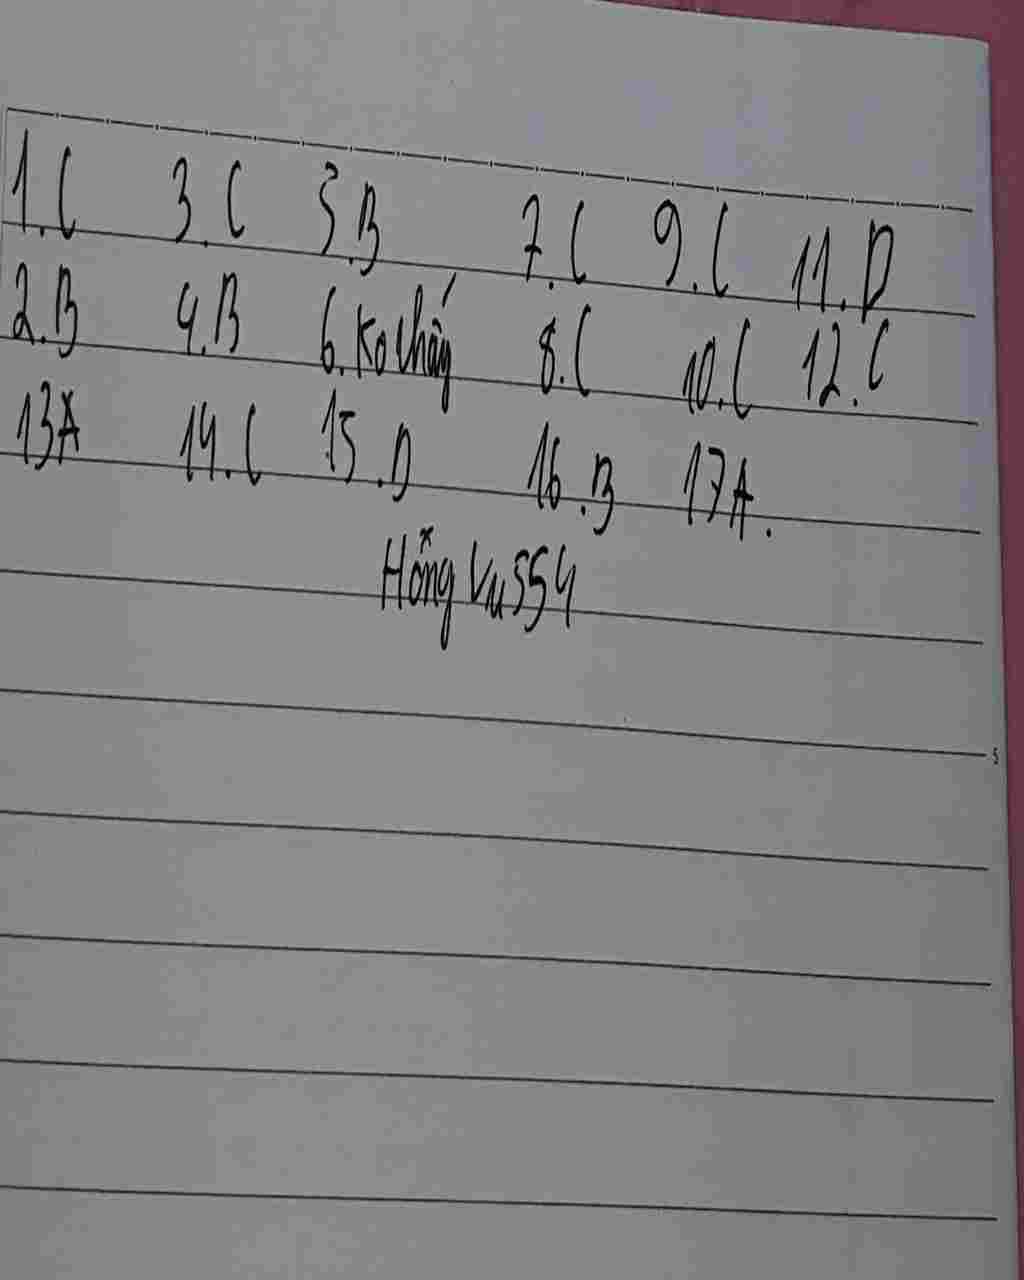 1.C 3.C 5.B 7.C 9.C 11.D
2.B 4.B 6.Ko thấy 8.C 10.C 12.C
13A 14.C 15.D 16.B 17A.
Hồng Vu554
5